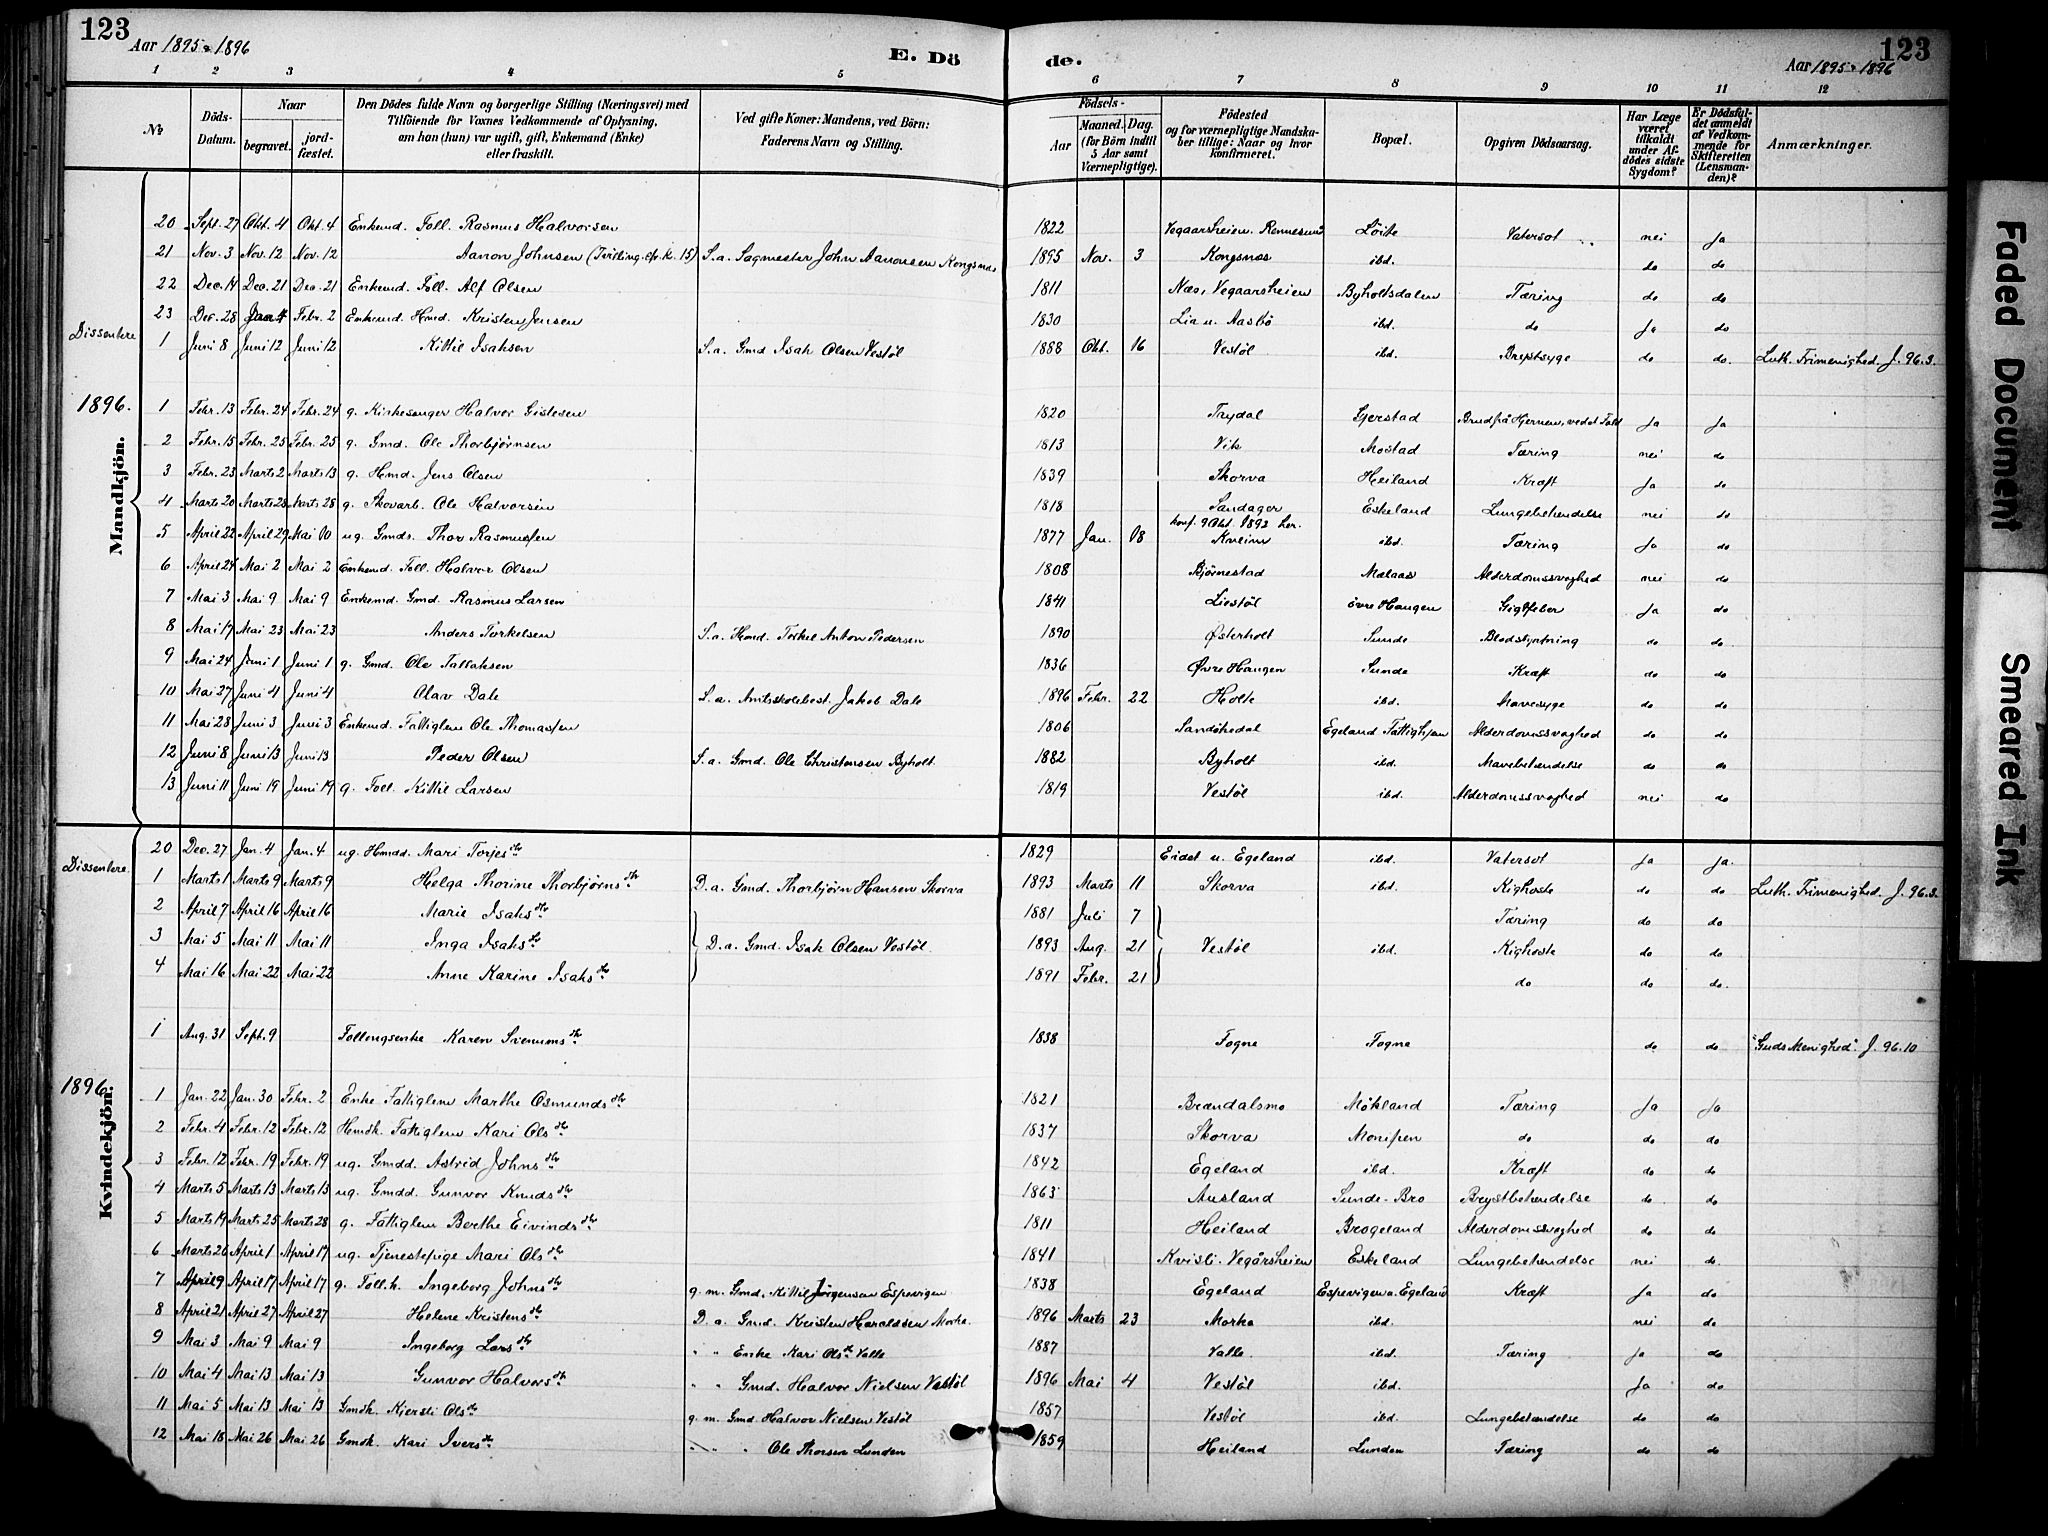 123
Aar 1895 & 1896
E. Dö
de.
Aar 1895 & 1896
123
1 2 3 4 5 6 7 8 9 10 11 12
No
Döds-Datum.
Naar
begravet.
jord-fæstet.
Den Dödes fulde Navn og borgerlige Stilling (Næringsvei) med Tilföiende for Voxnes Vedkommende af Oplysning, om han (hun) var ugift, gift, Enkemand (Enke) eller fraskilt.
Ved gifte Koner: Mandens, ved Börn: Faderens Navn og Stilling.
Födsels-
Aar
Maaned. Dag.
(for Börn indtil 5 Aar samt Værnepligtige).
Födested og for værnepligtige Mandskaber tillige: Naar og hvor konfirmeret.
Bopæl.
Opgiven Dödsaarsag.
Har Læge været tilkaldt under Afdödes sidste Sygdom?
Er Dödsfaldet anmeldt af Vedkommende for Skifteretten (Lensmanden)?
Anmærkninger.
Mandkjön.
20 Sept. 27 Okt. 4 Okt. 4 Enkemd. Foll. Rasmus Halvorsen 1822 Vegaarsheien Löite Vatersot nei ja
21 Nov. 3 Nov. 12 Nov. 12 Aanon Johnsen (Tvilling, cfr. k. 15) S. a. Sagmester John Aanonsen Kongsnæs 1895 Nov. 3 Kongsnæs ibd. do do
22 Dec. 14 Dec. 21 Dec. 21 Enkemd. Foll. Alf Olsen 1811 Næs, Vegaarsheien Byholtsdalen Tæring do do
23 Dec. 28 Jan. 4 Febr. 2 Enkemd. Hmd. Kristen Jensen 1830 Lia u. Aasbö ibd. do ja do
Dissentere 1 Juni 8 Juni 12 Juni 12 Kittil Isaksen S. a. Gmd Isak Olsen Vestöl 1888 Okt. 16 Vestöl ibd. Brystsyge do do. Luth. Frimenighed. J. 96.3.
1896. 1 Febr. 13 Febr. 24 Febr. 24 g. Kirkesanger Halvor Gislesen 1820 Trydal Gjerstad Brud på Hjernen, ved et Fald ja ja
2 Febr. 15 Febr. 25 Febr. 25 g. Gmd. Ole Thorbjörnsen 1813 Vik Mostad Tæring nei do
3 Febr. 23 Marts 2 Marts 13 g. Hmd. Jens Olsen 1839 Skorva Heiland Kræft ja do
4 Marts 20 Marts 28 Marts 28 g. Skovarb. Ole Halvorsen 1818 Sandager Eskeland Lungebetændelse nei do
5 April 22 April 29 Mai 10 ug. Gmds. Thor Rasmussen 1877 Jan. 08 konf. 9 Okt. 1892 her. Kveim ibd. Tæring ja do
6 April 24 Mai 2 Mai 2 Enkemd Foll. Halvor Olsen 1808 Bjørnestad Mælaas Alderdomssvaghed nei do
7 Mai 3 Mai 9 Mai 9 Enkemd. Gmd. Rasmus Larsen 1841 Liestöl övre Haugen Gigtfeber ja do
8 Mai 17 Mai 23 Mai 23 Anders Torkelsen S. a. Hmd. Torkel Anton Pedersen 1890 Østerholt Sunde Blodstyrtning do do
9 Mai 24 Juni 1 Juni 1 g. Gmd. Ole Tallaksen 1836 Øvre Haugen Sunde Kræft do do
10 Mai 27 Juni 4 Juni 4 Olav Dale S. a. Amtsskolebest. Jakob Dale 1896 Febr. 22 Holte ibd. Mavesyge do do
11 Mai 28 Juni 3 Juni 3 Enkemd Fattiglem Ole Thomassen 1806 Sandökedal Egeland Fattighjem Alderdomssvaghed do do
12 Juni 8 Juni 13 Juni 13 Peder Olsen S. a. Gmd. Ole Christensen Byholt 1882 Byholt ibd. Mavebetændelse do do
13 Juni 11 Juni 19 Juni 19 g. Foll. Kittil Larsen 1819 Vestöl ibd. Alderdomssvaghed nei do
Kvindekjön.
20 Dec. 27 Jan. 4 Jan. 4 ug. Hmdd. Mari Torjesdtr 1829 Eidet u. Egeland ibd. Vatersot ja ja.
Dissentere. 1 Marts 1 Marts 9 Marts 9 Helga Thorine Thorbjørnsdtr D. a. Gmd. Thorbjörn Hansen Skorva 1893 Marts 11 Skorva ibd. Kighoste do do Luth. Frimenighed. J. 96.3.
2 April 7 April 16 April 16 Marie Isaksdtr 1881 Juli 7 Tæring do do
3 Mai 5 Mai 11 Mai 11 Inga Isaksdtr D. a. Gmd. Isak Olsen Vestöl. 1893 Aug. 21 Vestöl ibd. Kighoste do do
4 Mai 16 Mai 22 Mai 22 Anne Karine Isaksdtr 1891 Febr. 21 do do do.
1 Aug. 31 Sept. 9 Follougsenke Karen Svenumsdtr 1838 Fogne Fogne do do "Guds Menighed". J. 96.10
1896. 1 Jan. 22 Jan. 30 Febr. 2 Enke Fattiglem Marthe Osmundsdtr 1821 Brændalsmo Mökland Tæring ja ja
2 Febr. 4 Febr. 12 Febr. 12 Hmdk. Fattiglem Kari Olsdtr 1837 Skorva Monipen do do do
3 Febr. 12 Febr. 19 Febr. 19 ug. Gmdd. Astrid Johnsdtr 1842 Egeland ibd. Kræft do do
4 Marts 5 Marts 13 Marts 13 ug. Gmdd. Gunvor Knudsdtr 1863 Ausland Sunde-Bro Brystbetændelse do do
5 Marts 19 Marts 25 Marts 28 g. Fattiglem Berthe Eivindsdtr 1811 Heiland Brogeland Alderdomssvaghed do do
6 Marts 26 April 1 April 17 ug. Tjenestepige Mari Olsdtr 1841 Kvisli. Vegårsheien Eskeland Lungebetændelse nei do.
7 April 9 April 17 April 17 g. Foll.k. Ingeborg Johnsdtr g. m. Gmd. Kittil Jörgensen Espevigen 1838 Egeland Espevigen u. Egeland Kræft ja do
8 April 21 April 27 April 27 Helene Kristensdtr D. a. Gmd. Kristen Haraldsen Morka. 1896 Marts 23 Morka ibd. nei do
9 Mai 3 Mai 9 Mai 9 Ingeborg Larsdtr " " Enke Kari Olsdtr Valle 1887 Valle ibd. Tæring ja do
10 Mai 4 Mai 13 Mai 13 Gunvor Halvorsdtr " " Gmd. Halvor Nielsen Vestöl 1896 Mai 4 Vestöl ibd. ja do
11 Mai 5 Mai 13 Mai 13 Gmdk. Kjersti Olsdtr g. m. Gmd. Halvor Nielsen Vestöl 1857 Vestöl ibd. Lungebetændelse do do
12 Mai 18 Mai 26 Mai 26 Gmdk. Kari Iversdtr " " " Ole Thorsen Lunden 1859 Heiland Lunden Tæring do do
Faded Document
Smeared Ink